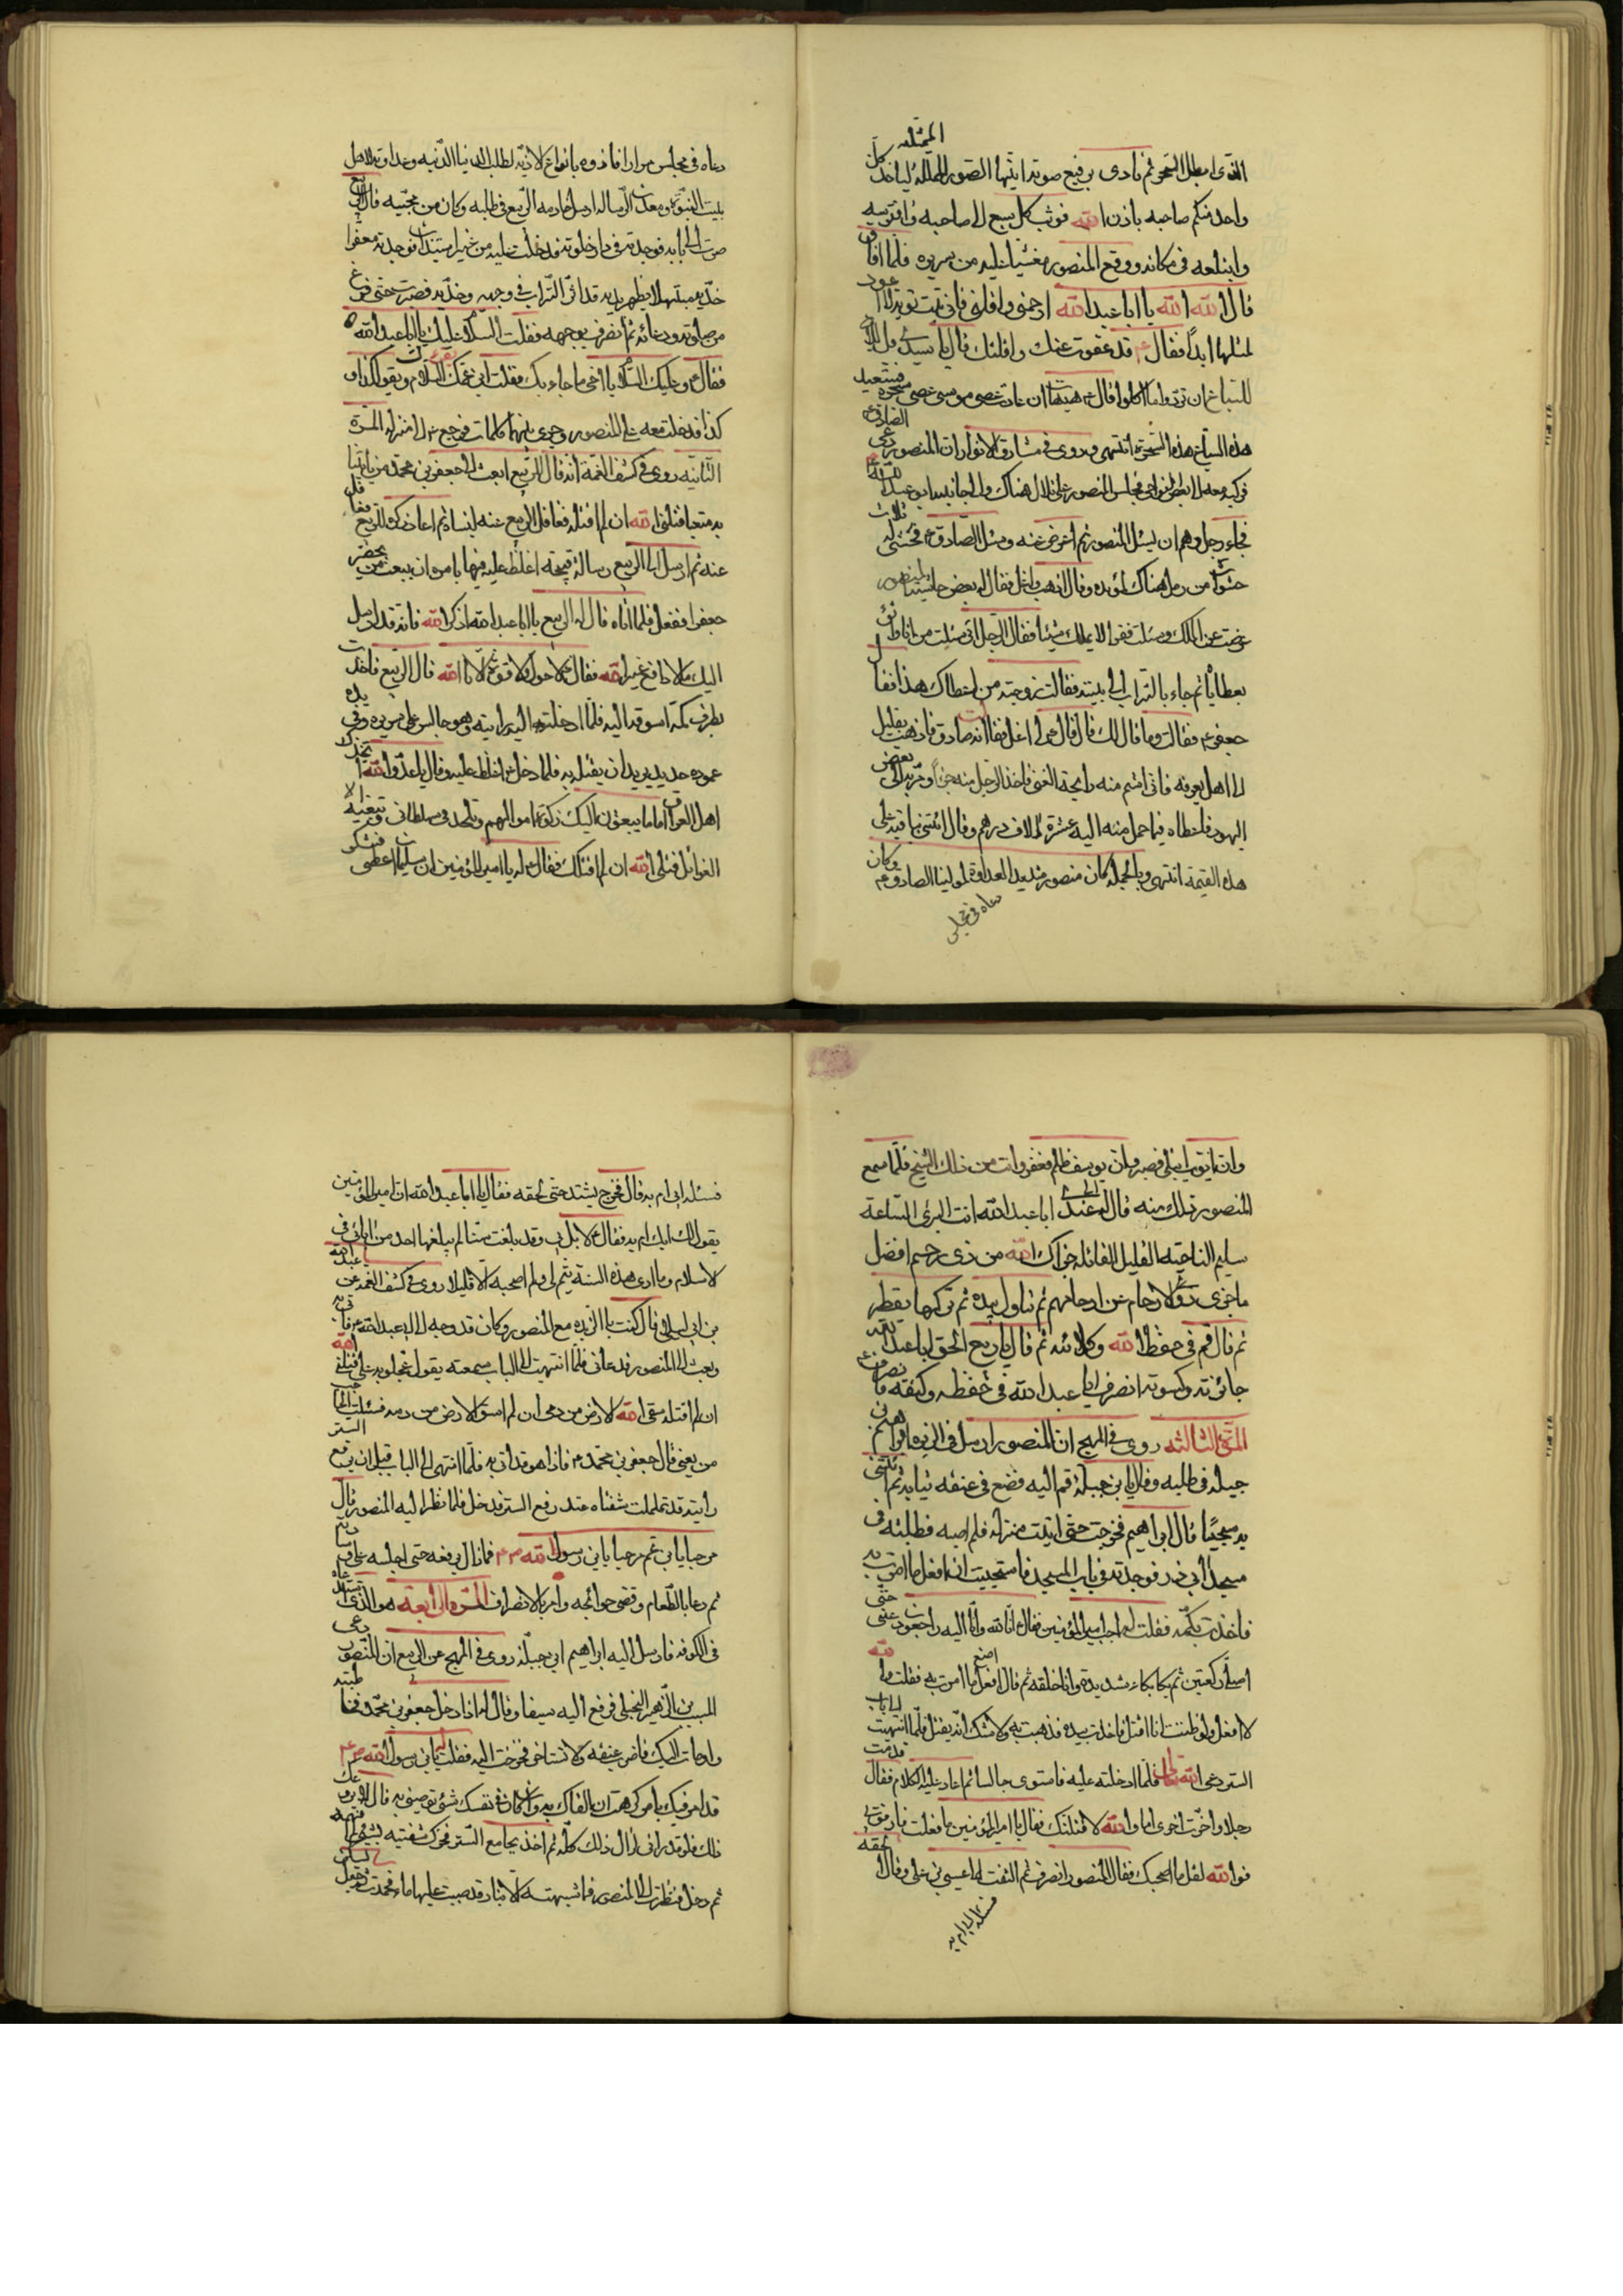 الممثله
الذى ابطل السحر ثم نادى برفيع صوته ايتها الصور الممثله لياخذ كل
واحد منكم صاحبه باذن الله فوثب كل سبع الى صاحبه وافترسه
وابتلعه فى مكانه ووقع المنصور مغشيا عليه من سريره فلما افاق
قال الله الله يا ابا عبد الله ارحمنى واقلنى فانى تبت توبة لا اعود
لمثلها ابدا فقال ع قد عفوت عنك واقلتك قال يا سيدى قل
للسباع ان تردوا ما اكلوا قال ع هيهات ان عادت عصى موسى سحرة فستعيد
هذه السباع هذه السحرة انتهى وروى فى مشارق الانوار ان المنصور
يوما ركب معه الى بعض النواحى فجلس المنصور على تلال هناك والى جانبه ابو عبد الله
فجاء رجل وهم ان يسئل المنصور ثم اعرض عنه وسئل الصادق ع فحثى له ثلاث
حثوات من رمل هناك وقال اذهب واغل فقال له بعض حاشية المنصور
عرضت عن الملك وسئلت فقيرا لا يملك شيئا فقال الرجل انى سئلت من انا واثق
بعطائه ثم جاء بالتراب الى بيته فقالت زوجته من اعطاك هذا فقال
جعفر ع فقالت وما قال لك قال قال لى اغل فقالت انه صادق فاذهب بقليل
الى اهل المعرفة فانى اشم منه رايحة الغنى فاخذ الرجل منه جزأ ومر به الى بعض
اليهود فاعطاه فيما حمل منه اليه عشرة الاف درهم وقال ائتنى بباقيه على
هذه القيمة انتهى وبالجملة كان منصور شديد العداوة لمولينا الصادق ع وكان
دعاه فى مجلس
دعاه فى مجلس مرارا فاذوه بانواع الاذيه لطلب الدنيا الدنيه وعداوته لاهل
بيت النبوة ومعدن الرساله ارسل خادمه الربيع فى طلبه وكان من محبيه قال الربيع
صرت الى بابه فوجدته فى دار خلوته فدخلت عليه من غير استيذان فوجدته معفرا
خديه مبتهلا بظهر يديه قد اثر التراب فى وجهه وخديه فصبرت حتى فرغ
من صلوته ودعائه ثم انصرف بوجهه فقلت السلام عليك يا ابا عبد الله
فقال ع وعليك السلام يا اخى ما جاء بك فقلت ابن عمك يقرئك السلام ويقول كذا و
كذا فدخلت معه على المنصور وجرى بينهما كلمات فرجع ع الى منزله المرة
الثانيه روى فى كشف الغمة انه قال للربيع ابعث الى جعفر بن محمد من ياتينا
به متعبا قتلنى الله ان لم اقتله فتغافل الربيع عنه لينساه ثم اعاد ذكره للربيع
عنه ثم ارسل الى الربيع رسالة قبيحة اغلظ عليه فيها يامره ان يبعث من يحضر
جعفرا ففعل فلما اتاه قال له الربيع يا ابا عبد الله اذكر الله فانه قد ارسل
اليك ما لا دافع غير الله فقال ع لا حول ولا قوة الا بالله قال الربيع فاخذت
بطرف كمه اسوقه اليه فلما ادخلته اليه رايته وهو جالس على سريره وفى يده
عمود حديد يريد ان يقتله به فلما دخل ع اغلظ عليه وقال يا عدو الله اتخذك
اهل العراق اماما يبعثون اليك زكوة اموالهم وتلحد فى سلطانى وتبغيه
الغوائل قتلنى الله ان لم اقتلك فقال ع له يا امير المؤمنين ان سليمان اعطى فشكر
وان ايوب ابتلى فصبر وان يوسف ظلم فغفر وانت من ذلك السنخ فلما سمع
المنصور ذلك منه قال له عندى ابا عبد الله انت البرئ الساعة
سليم الناحية القليل الغائلة جزاك الله من ذى رحم افضل
ما جزى ذوى الارحام عن ارحامهم ثم تناول يده
ثم قال قم فى حفظ الله وكلائته ثم قال يا ربيع الحق ابا عبد الله
جائزته وكسوته انصرف ابا عبد الله فى حفظه وكنفه فانصرف ع
المرة الثالثه روى فى المهج ان المنصور ارسل فى الربذه ابراهيم بن
جبلة فى طلبه وقال يا بن جبلة قم اليه فضع فى عنقه ثيابه ثم ائتنى
به سحبا قال ابراهيم فخرجت حتى اتيت منزله فلم اصبه فطلبته فى
مسجد ابى ذر فوجدته فى باب المسجد فاستحييت ان افعل ما امرت به
فاخذت بكمه فقلت له اجب امير المؤمنين فقال انا لله وانا اليه راجعون دعنى حتى
اصلى ركعتين ثم بكا بكاء شديدا وانا خلفه ثم قال اصنع ما امرت به فقلت والله
لا افعل ولو ظننت انى اقتل فاخذت بيده فذهبت به ولا اشك انه يقتله فلما انتهيت الى باب
الستر دعى الله تعالى فلما ادخلته عليه فاستوى جالسا ثم اعاد عليه الكلام فقال قدمت
رجلا واخرت اخرى اما والله لاقتلنك فقال يا امير المؤمنين ما فعلت فارفق بى
فوالله لقلما اصحبك فقال المنصور انصرف ثم التفت الى عيسى بن على وقال الحقه
فسئله ابى ام به
فسئله ابى ام به قال فخرج يشتد حتى لحقه فقال يا ابا عبد الله ان امير المؤمنين
يقول لك ابك ام به فقال ع لا بل بى وقد بلغت سنا لم يبلغها احد من ابائى فى
الاسلام وما ارى هذه السنة تتم لى ولم اصحبه الا قليلا روى فى كشف الغمه عن عبد الله
بن ابى ليلى قال كنت بالربذه مع المنصور وكان قد وجه الى ابى عبد الله ع فاتى به
وبعث الى المنصور فدعانى فلما انتهيت الى الباب سمعته يقول عجلوا به على قتلنى الله
ان لم اقتله سقى الله الارض من دمى ان لم اسق الارض من دمه فسئلت الحاجب
من يعنى قال جعفر بن محمد ع فاذا هو قد اتى به فلما انتهى الى الباب قبل ان يرفع الستر
رايته قد تململت شفتاه عند رفع الستر فدخل فلما نظر اليه المنصور قال
مرحبا يا ابن عم مرحبا يا ابن رسول الله ص فما زال يرفعه حتى اجلسه على وسادته
ثم دعا بالطعام وقضى حوائجه وامره بالانصراف المرة الرابعه هو الذى
فى الكوفه فارسل اليه ابراهيم ابن جبله روى فى المهج عن الربيع ان المنصور دعى
المسيب بن الزهير البجلى فرفع اليه سيفا وقال له اذا دخل جعفر بن محمد فخاطبته
واومات اليك فاضرب عنقه ولا تستاخر فخرجت اليه فقلت يا بن رسول الله ص
قد امر فيك بامر كرهت ان القاك به وان كان فى نفسك شئ توصينى به فقال لا يروعك
ذلك فلو قد رانى لزال ذلك كله ثم اخذ بمجامع الستر فحرك شفتيه بشئ لم افهمه
ثم دخل فنظرت الى المنصور فما شبهته الا بنار قد صب عليها ماء فخمدت وجعل يسكن